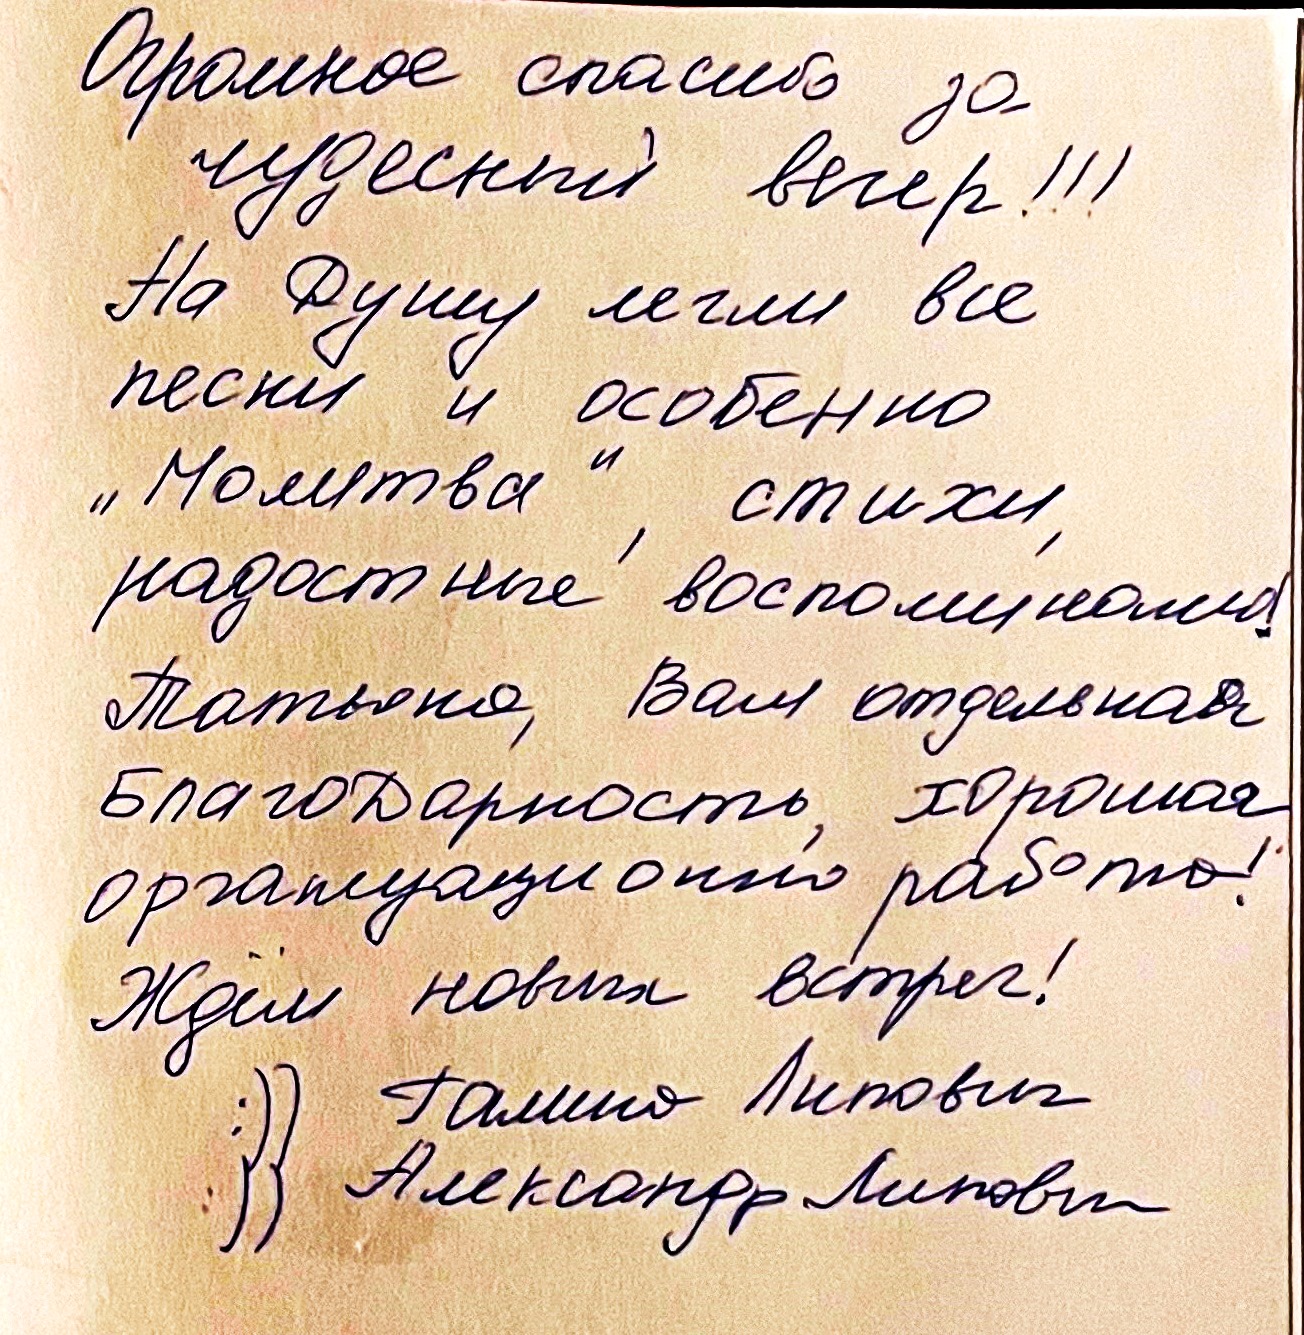 Огромное спасибо за
чудесный вечер!!!
На Душу легли все
песни и особенно
„Молитва“, стихи,
радостные воспоминания!
Татьяна, Вам отдельная
благоДарность, хорошая
организационно работа!
Ждём новых встреч!
:)) Галина Липович
:)) Александр Липович